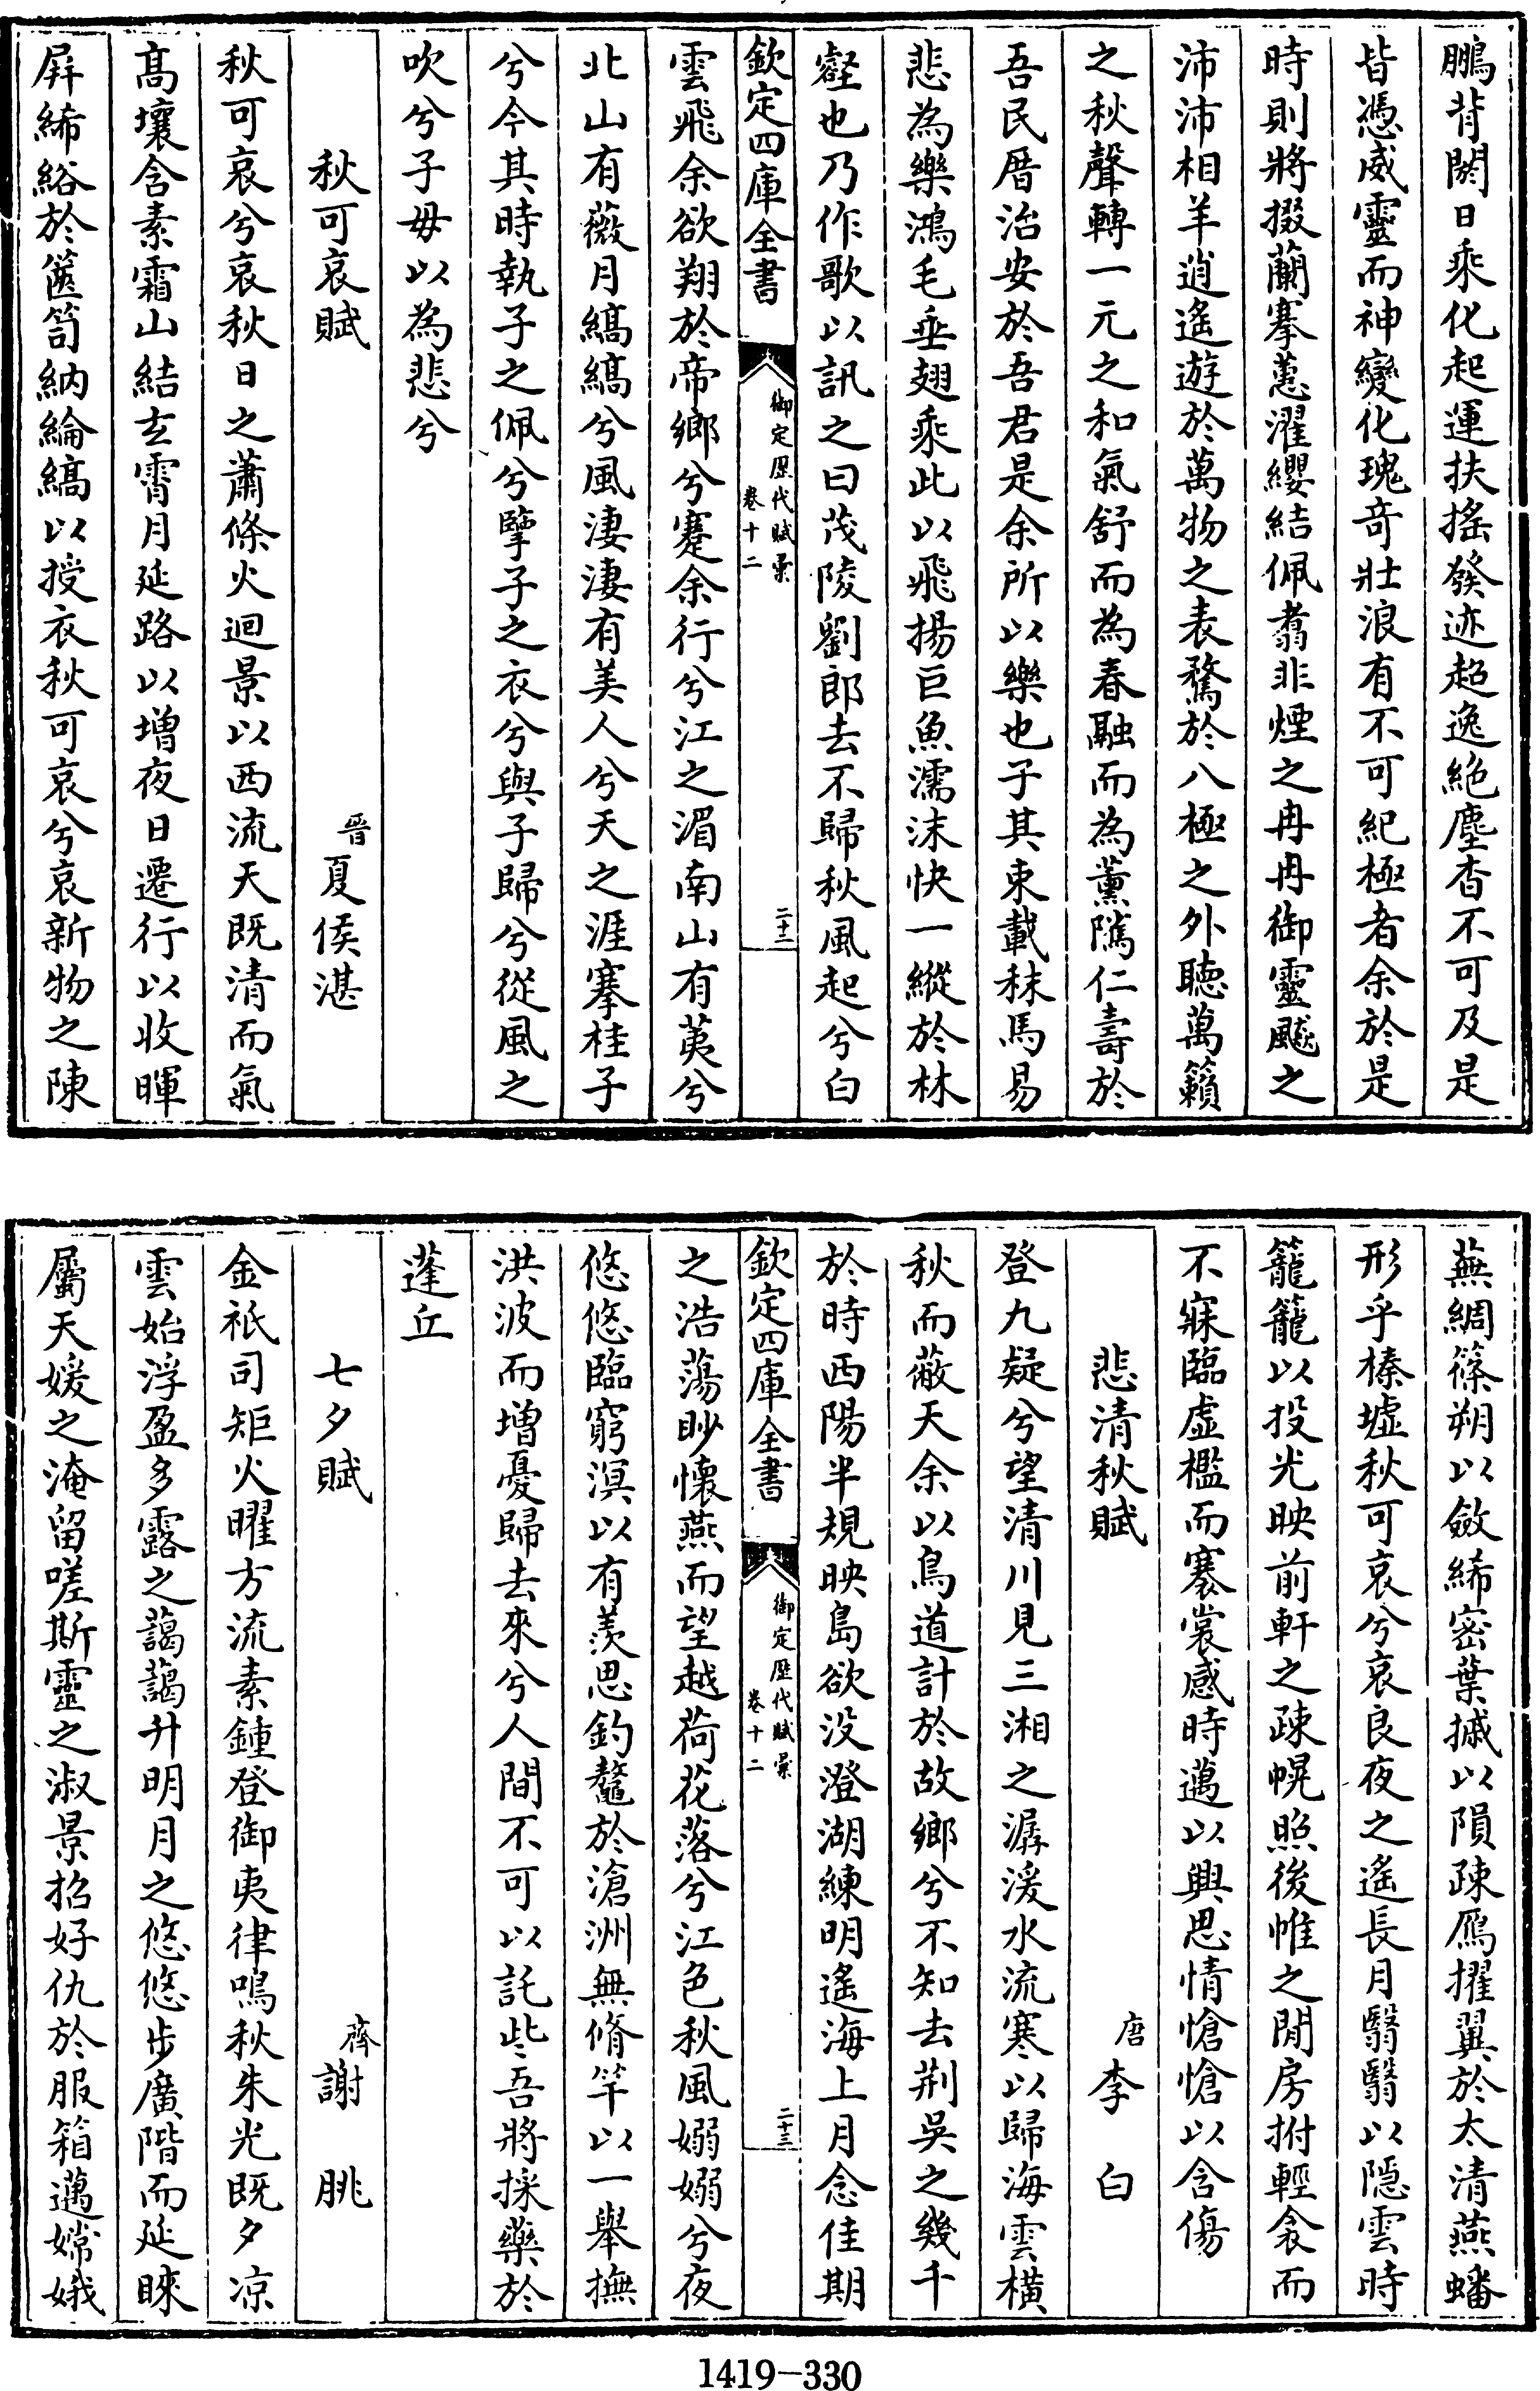 鵬背閼日乘化起運扶搖發迹超逸絶塵杳不可及是
皆憑威靈而神變化瑰奇壯浪有不可紀極者余於是
時則將掇蘭搴蕙濯纓結佩翥非煙之冉冉御靈飇之
沛沛相羊逍遙遊於萬物之表騖於八極之外聽萬籟
之秋聲轉一元之和氣舒而為春融而為薰隲仁壽於
吾民厝治安於吾君是余所以樂也子其束載秣馬易
悲為樂鴻毛垂翅乘此以飛揚巨魚濡沫快一縱於林
壑也乃作歌以訊之曰茂陵劉郎去不歸秋風起兮白
欽定四庫全書
御定歷代賦彙
卷十二
二十二
雲飛余欲翔於帝鄉兮蹇余行兮江之湄南山有荑兮
北山有薇月縞縞兮風淒淒有美人兮天之涯搴桂子
兮今其時執子之佩兮擥子之衣兮與子歸兮從風之
吹兮子毋以為悲兮
秋可哀賦
晉夏侯湛
秋可哀兮哀秋日之蕭條火迴景以西流天既清而氣
髙壤含素霜山結玄霄月延路以增夜日遷行以收暉
屏絺綌於篋笥納綸縞以授衣秋可哀兮哀新物之陳
蕪綢篠朔以斂絺密葉摵以隕疎鴈擢翼於太清燕蟠
形乎榛墟秋可哀兮哀良夜之遙長月翳翳以隠雲時
籠籠以投光映前軒之疎幌照後帷之閒房拊輕衾而
不寐臨虛檻而褰裳感時邁以興思情愴愴以含傷
悲清秋賦
唐李白
登九疑兮望清川見三湘之潺湲水流寒以歸海雲橫
秋而蔽天余以鳥道計於故鄉兮不知去荆吳之幾千
於時西陽半規映島欲没澄湖練明遙海上月念佳期
欽定四庫全書
御定歷代賦彙
卷十二
二十三
之浩蕩眇懷燕而望越荷花落兮江色秋風嫋嫋兮夜
悠悠臨窮溟以有羨思釣鼇於滄洲無脩竿以一舉撫
洪波而增憂歸去來兮人間不可以託些吾將採藥於
蓬丘
七夕賦
齊謝朓
金祇司矩火曜方流素鍾登御夷律鳴秋朱光既夕凉
雲始浮盈多露之藹藹升明月之悠悠步廣階而延睞
屬天媛之淹留嗟斯靈之淑景招好仇於服箱邁嫦娥
1419-330